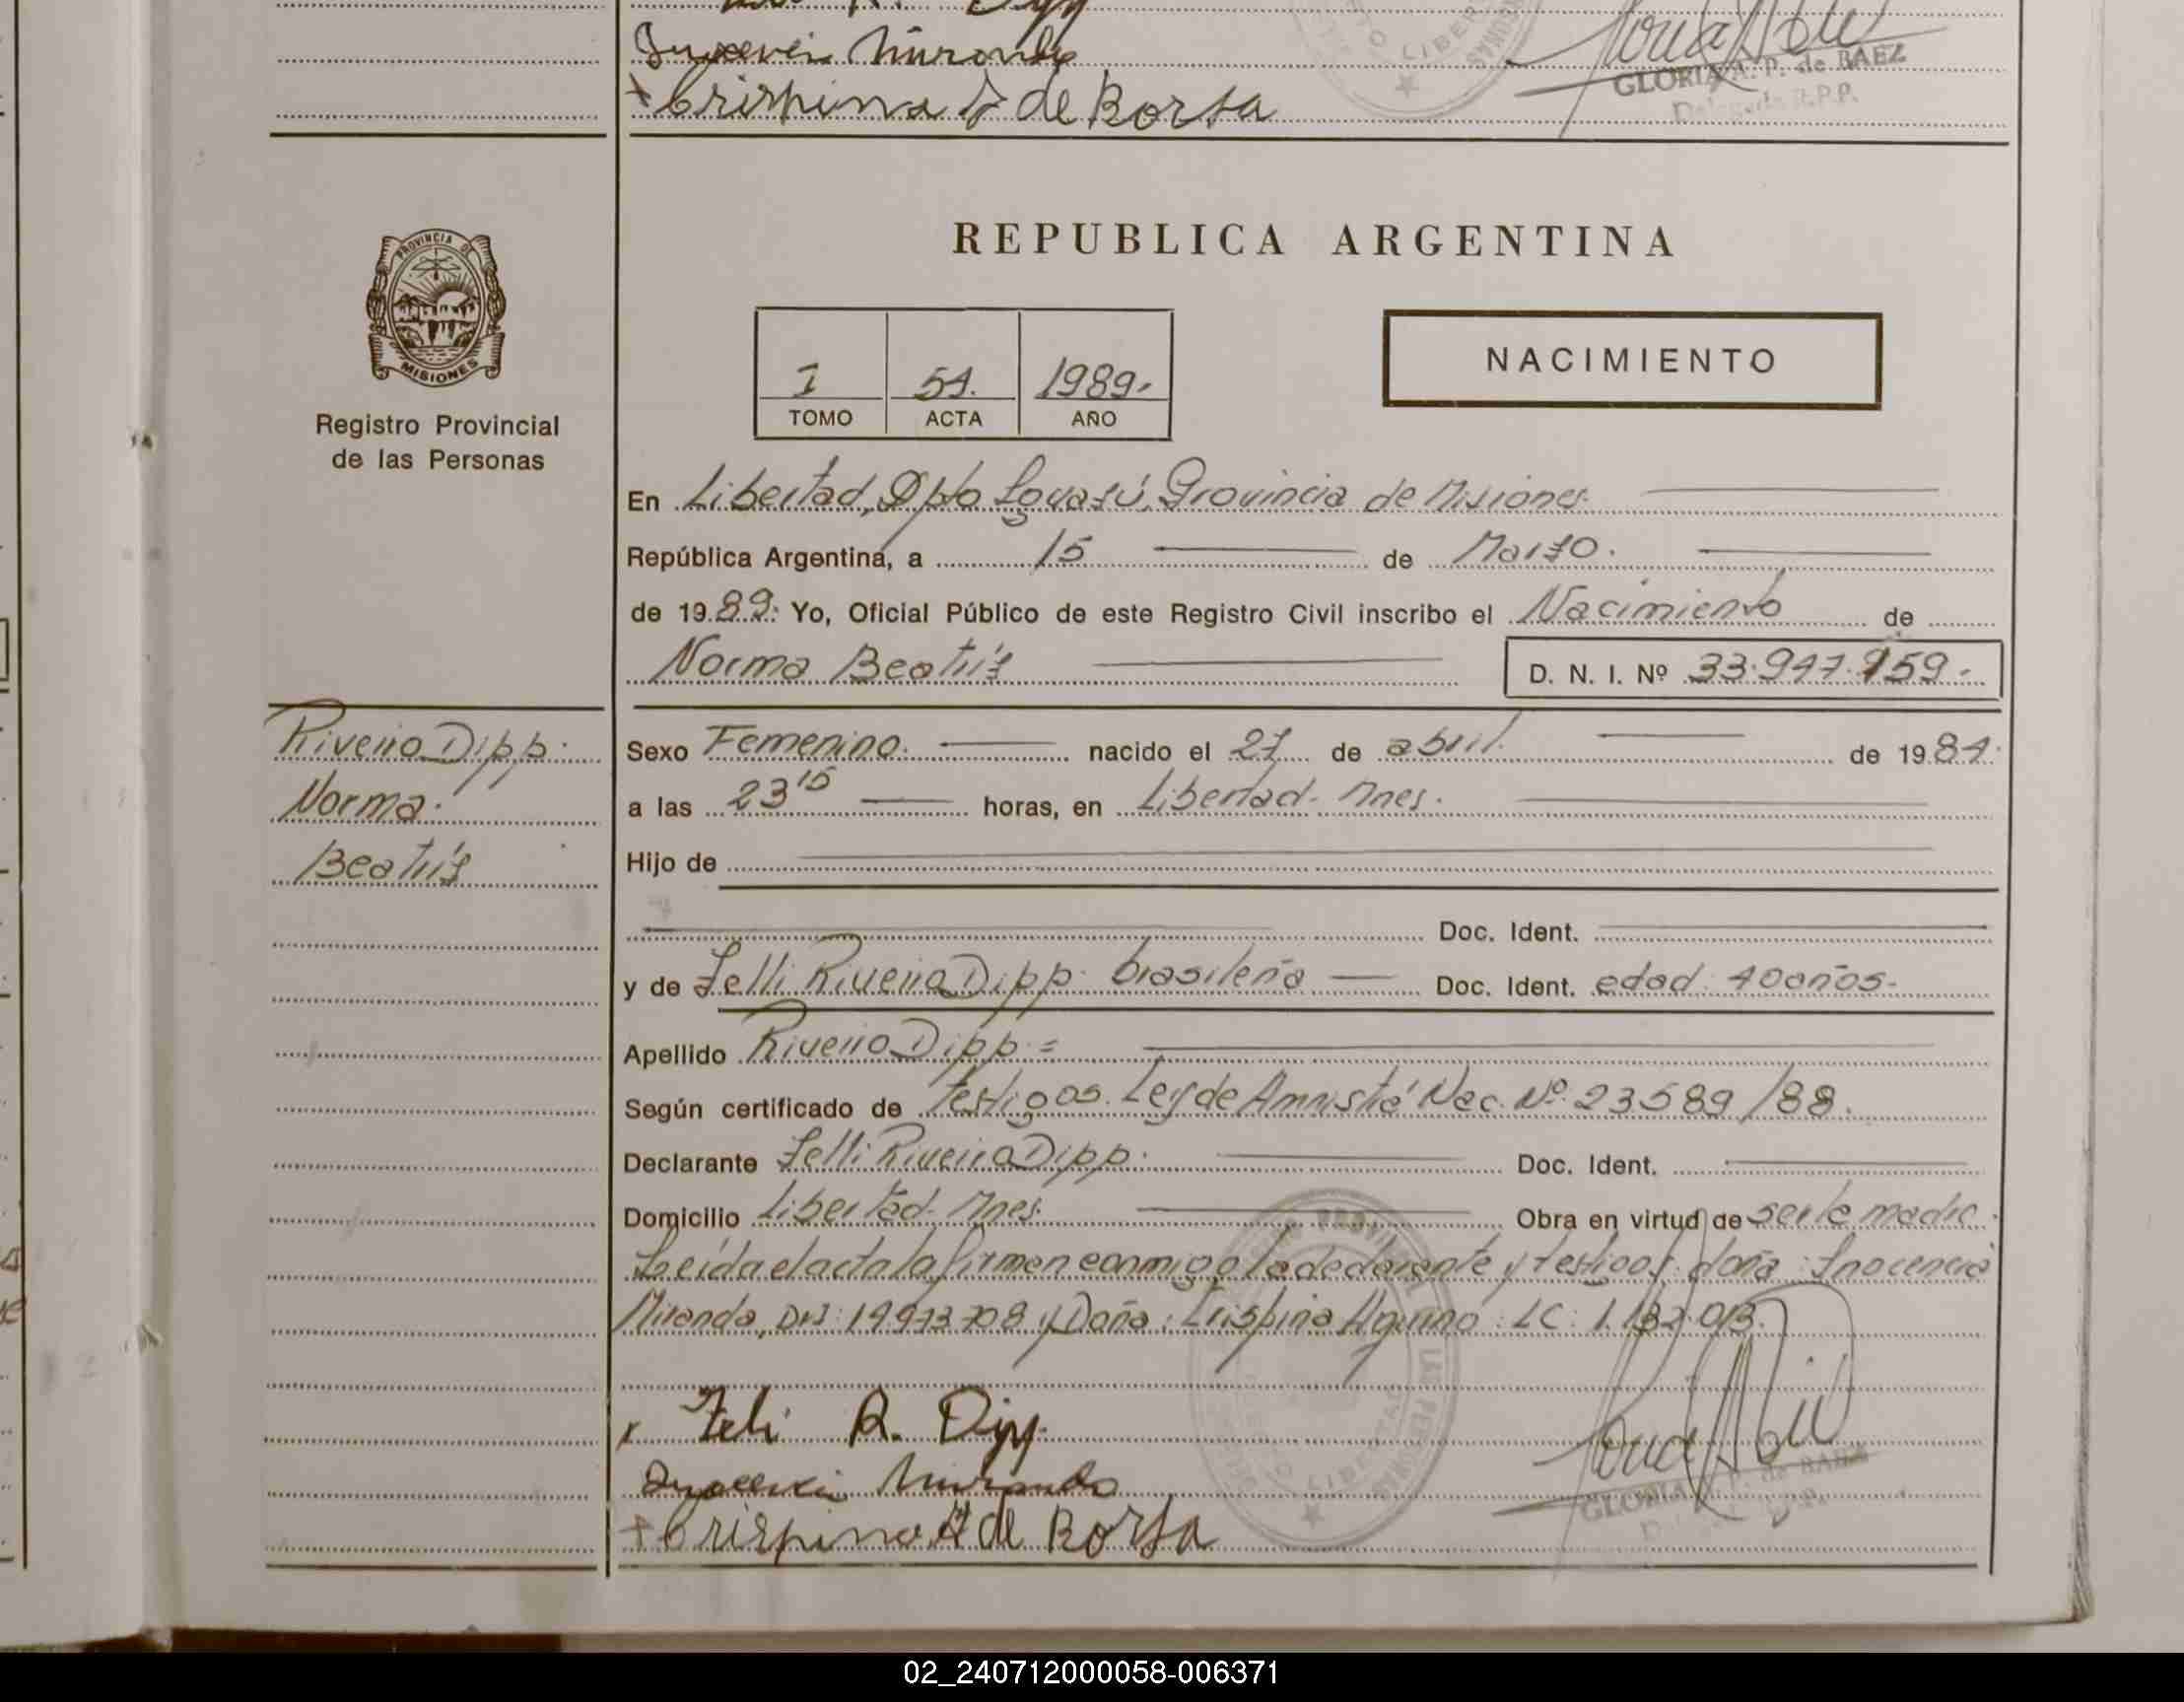 Inocencia Miranda
+ Crispina A de Borja
GLORIA A. P. de BAEZ
Delegada R.P.P.
PROVINCIA DE
MISIONES
Registro Provincial
de las Personas
REPUBLICA ARGENTINA
I 54. 1989.
TOMO ACTA AÑO
NACIMIENTO
En Libertad, Dpto Iguazú, Provincia de Misiones.
República Argentina, a 15 de Marzo.
de 1989. Yo, Oficial Público de este Registro Civil inscribo el Nacimiento de
Norma Beatriz D. N. I. Nº 33.947.959.-
Riveiro Dipp.
Norma.
Beatriz
Sexo Femenino. nacido el 27 de abril. de 1984.
a las 23 15 horas, en Libertad - Mnes.
Hijo de
Doc. Ident.
y de Felli Riveiro Dipp. brasileña Doc. Ident. edad: 40 años.-
Apellido Riveiro Dipp =
Según certificado de Testigos. Ley de Amnistía Nac. Nº 23589/88.
Declarante Felli Riveiro Dipp. Doc. Ident.
Domicilio Libertad - Mnes. Obra en virtud de ser la madre.
Leída el acta la firman conmigo la declarante y testigos: doña: Inocencia
Miranda, DNI: 14973708 y Doña: Crispina Aquino: LC: 1.132.013.
x Feli R. Dipp.
Inocencia Miranda
+ Crispina A de Borja
GLORIA A. P. de BAEZ
02_240712000058-006371